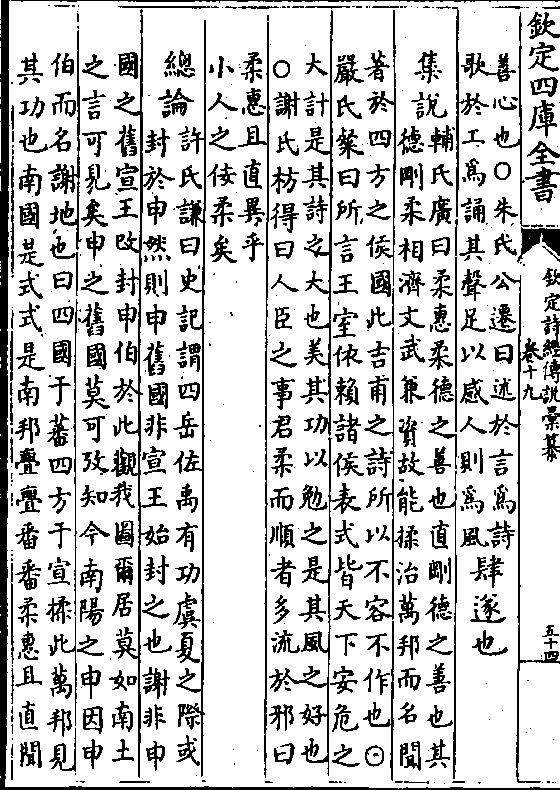 欽定四庫全書
欽定詩經傳說彙纂
卷十九
五十四
善心也○朱氏公遷曰述於言為詩
歌於工為誦其聲足以感人則為風
肆遂也
集說
輔氏廣曰柔惠柔德之善也直剛德之善也其
德剛柔相濟文武兼資故能揉治萬邦而名聞
著於四方之侯國此吉甫之詩所以不容不作也○
嚴氏粲曰所言王室依賴諸侯表式皆天下安危之
大計是其詩之大也美其功以勉之是其風之好也
○謝氏枋得曰人臣之事君柔而順者多流於邪曰
柔惠且直異乎
小人之佞柔矣
總論
許氏謙曰史記謂四岳佐禹有功虞夏之際或
封於申然則申舊國非宣王始封之也謝非申
國之舊宣王改封申伯於此觀我圖爾居莫如南土
之言可見矣申之舊國莫可攷知今南陽之申因申
伯而名謝地也曰四國于蕃四方于宣揉此萬邦見
其功也南國是式式是南邦亹亹番番柔惠且直聞